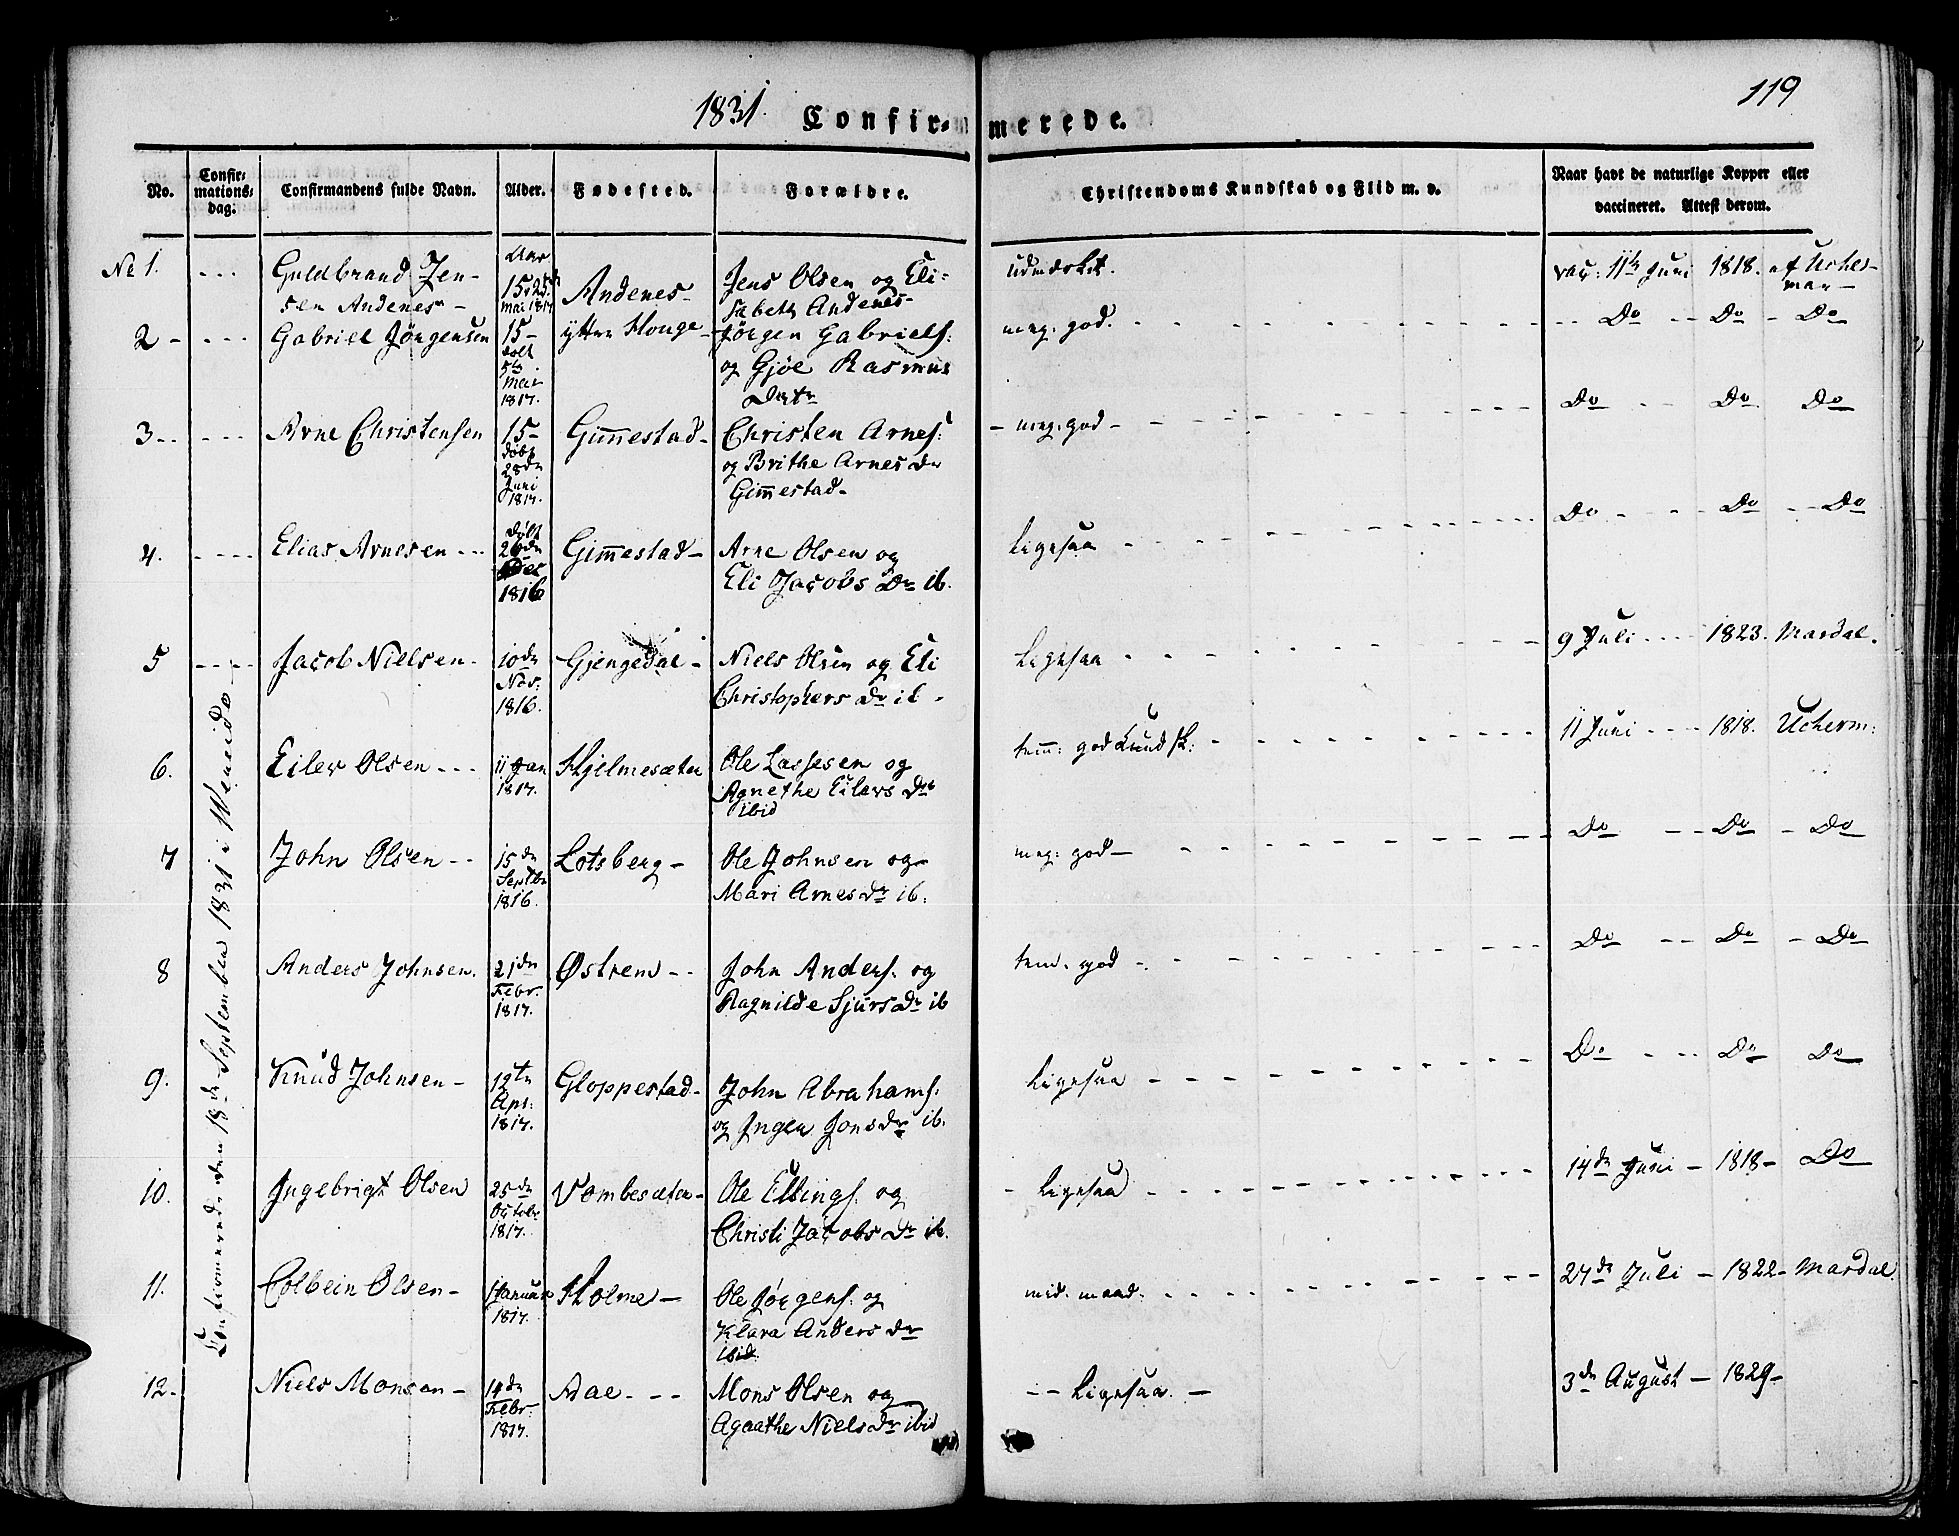 1831. Confirmerede. 119
No. Confirmationsdag: Confirmandens fulde Navn. Alder. Fødested. Forældre. Christendoms Kundskab og Flid m. v. Naar havt de naturlige Kopper eller vaccineret. Attest derom.
Confirmerede den 18de September 1831 i
No 1. - - - Guldbrand Jen- Aar Andenes- Jens Olsen og Eli= udmærket. vac: 11te Juni 1818. af Ucher-
sen Andenes - 15 25de Mai 1817 sabeth Andenes- man -
2 - - - - Gabriel Jørgensen 15- døbt 5te Mai 1817. ytter Houge - Jørgen Gabriels: meg: god. - - Do - - Do - Do
og Gjøe Rasmus
Datr
3 - - - - - Arne Christensen 15- døbt 28de Juni 1817. Gimmestad- Christen Arnes: - meg: god - - Do - - Do Do
og Brithe Arnes Dr
Gimmestad-
4. - - - - Elias Arnesen - - døbt 26de Dec 1816 Gimmestad- Arne Olsen og Ligesaa - - Do - - Do - Do
Eli Jacobs Dr ib.
5 - - - - Jacob Nielsen - 10de Nov: 1816. Gjengedal - Niels Olsen og Eli Ligesaa - - 9 Juli - - 1823. Mardal.
Christophers Dr ib -
6. Eiler Olsen - - - 11 Jan 1817. Hjelmesæter Ole Lassesen og tem: god Kundsk: - - 11 Juni - - 1818. Ucherm:
Agnethe Eilers Dr
ibid
7 John Olsen - - 15de Septbr 1816. Lotsberg - Ole Johnsen og meg: god - - Do - - Do - Do
Mari Arnes Dr ib.
8 Anders Johnsen. 21de Febr. 1817. Østrem - - John Anders: og tem: god - - Do - - Do - Do
Ragnilde Sjurs Dr ib
9. Knud Johnsen - 12te Apr: 1817. Gloppestad- John Abrahams: Ligesaa - - Do - - Do Do
og Ingen Jons Dr ib.
10. Ingebrigt Olsen 25de Octobr 1817. Vombesæter- Ole Ellings: og - Ligesaa - - 14de Juni - 1818- Do
Christi Jacobs Dr ib.
11. Colbein Olsen - 1 Januar 1817. Holme - Ole Jørgens: og mid. maad. - - 27de Juli - 1822- Mardal.
Klara Anders Dr
ibid.
12. Niels Monsen - 14de Febr. 1817. Aae - - - Mons Olsen og - - Ligesaa. - 3de August - 1829-
Agaathe Niels Dr ibid